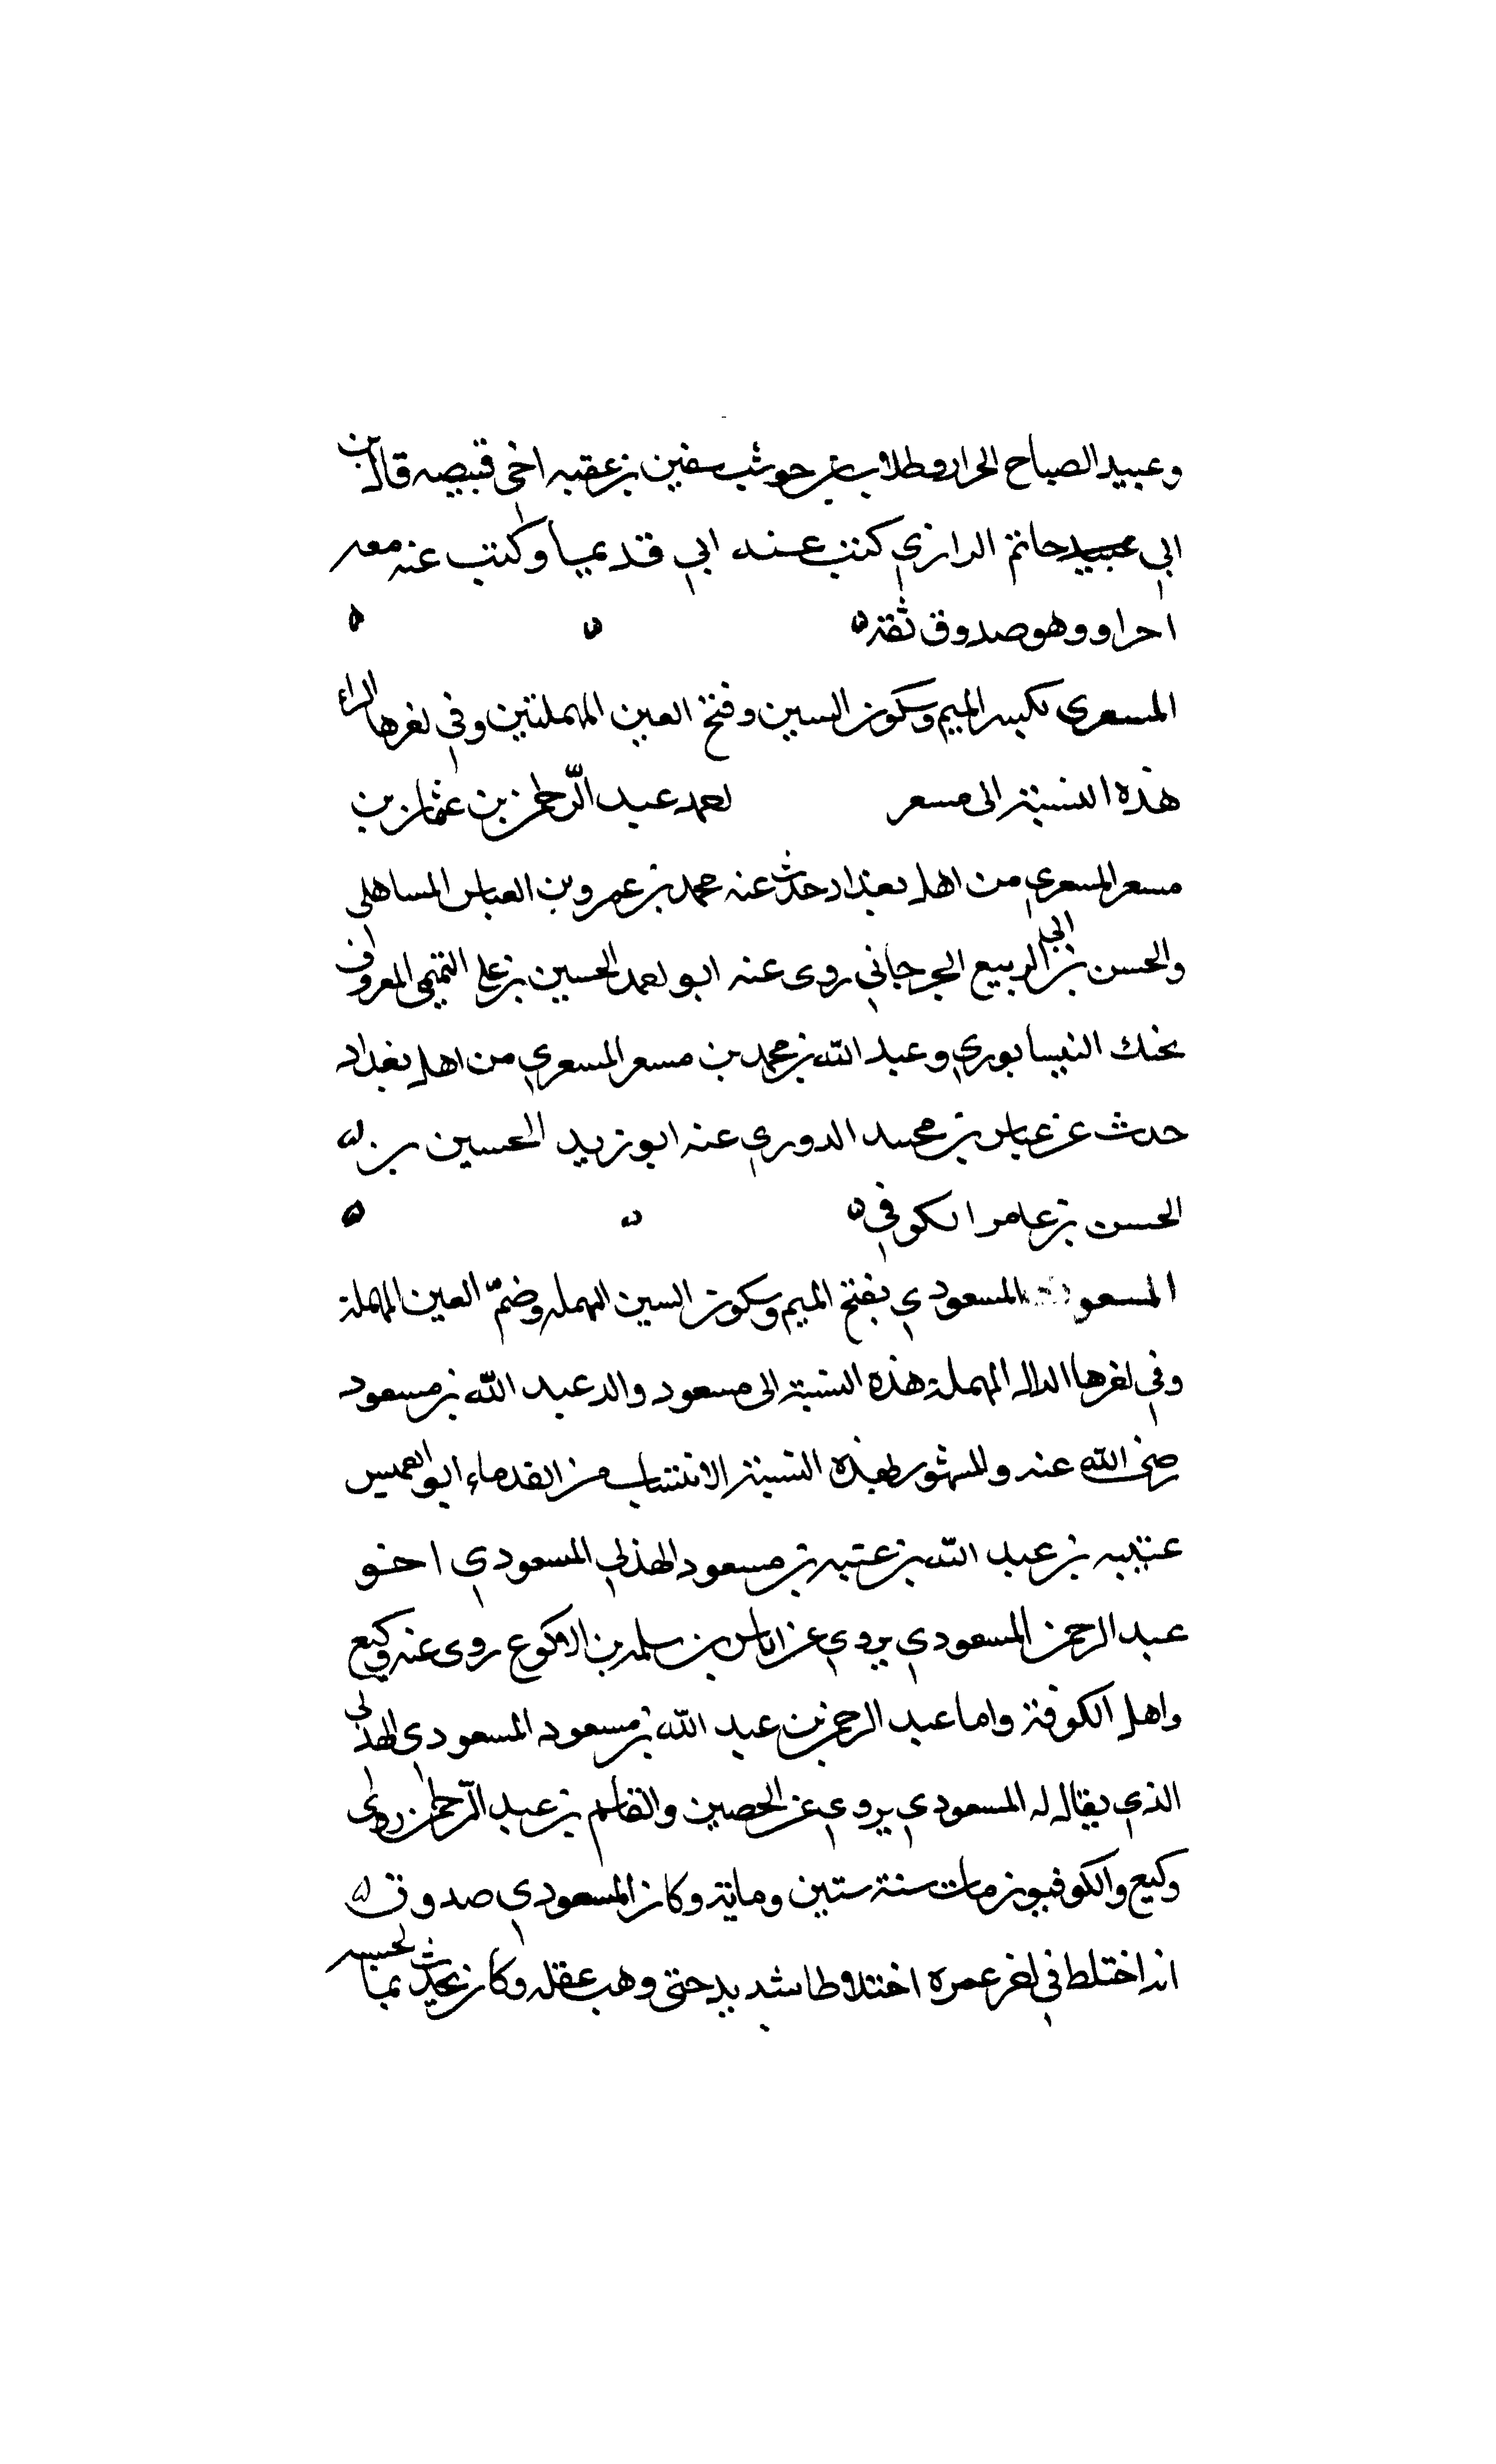 وعبيد الصباح الحرار وطلاب بن حوشب سفين بن عقبه اخي قبيصه قال بن
ابي حاتم الرازي كتب عنه ابي قديما وكتب عنه معه
احراو وهو صدوق ثقة ه
المسعري بكسر الميم وسكون السين وفتح العين المهملتين وفي اخرها الراء
هذه النسبة الى مسعر احمد عبد الرحمن بن عثمان بن
مسعر المسعري من اهل بغداد حدث عنه محمد بن عمرو بن العباس الباهلي
والحسن بن ابي الربيع الجرجاني روى عنه ابو احمد الحسين بن علي التميمي المعروف
بحنك النيسابوري وعبد الله بن محمد بن مسعر المسعري من اهل بغداد
حدث عن عباس بن محمد الدوري عنه ابو زيد الحسين بن
الحسن بن عامر الكوفي ه
المسعودي المسعودي بفتح الميم وسكون السين المهمله وضم العين المهملة
وفي اخرها الدال المهملة هذه النسبة الى مسعود والد عبد الله بن مسعود
رضي الله عنه والمشهور بهذه النسبة الانتساب من القدماء ابو العميس
عتيبه بن عبد الله بن عتبه بن مسعود الهذلي المسعودي اخو
عبد الرحمن المسعودي يروي عن اياس بن سلمه بن الاكوع روى عنه وكيع
واهل الكوفة واما عبد الرحمن بن عبد الله بن مسعود المسعودي الهذلي
الذي يقال له المسعودي يروي عن الحصين والقاسم بن عبد الرحمن روى
وكيع والكوفيون مات سنة ستين وماية وكان المسعودي صدوق
انه اختلط في اخر عمره اختلاطا شديد حتى وهب عقله وكان يحدث بما يحبسه